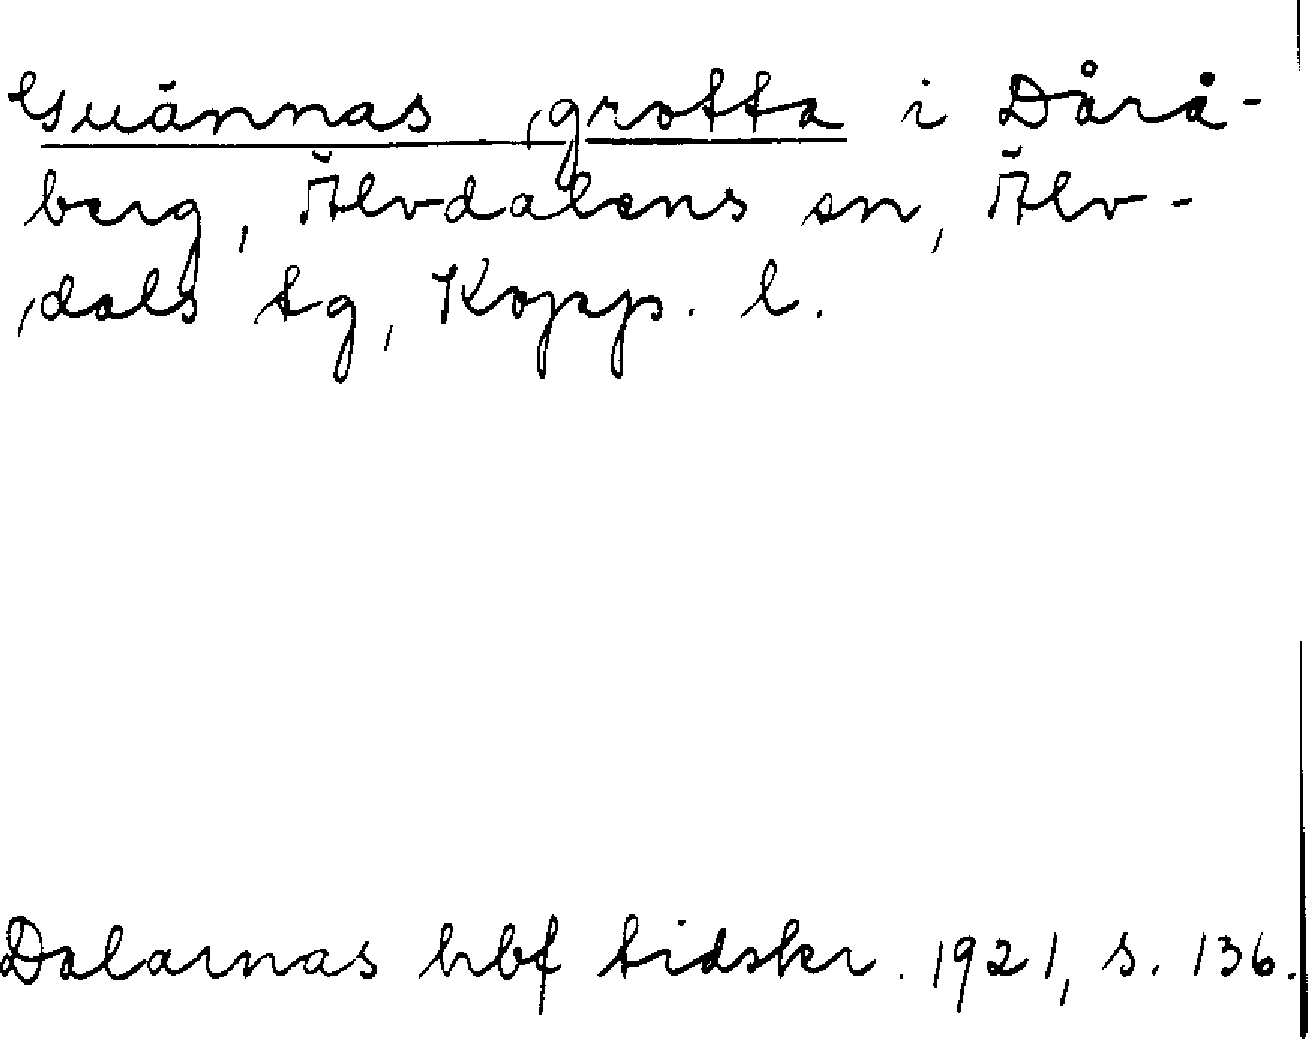 Guännas grotta i Dårå-
berg, Älvdalens sn, Älv-
dals tg, Kopp. l.
Dalarnas hbf tidskr. 1921, s. 136.